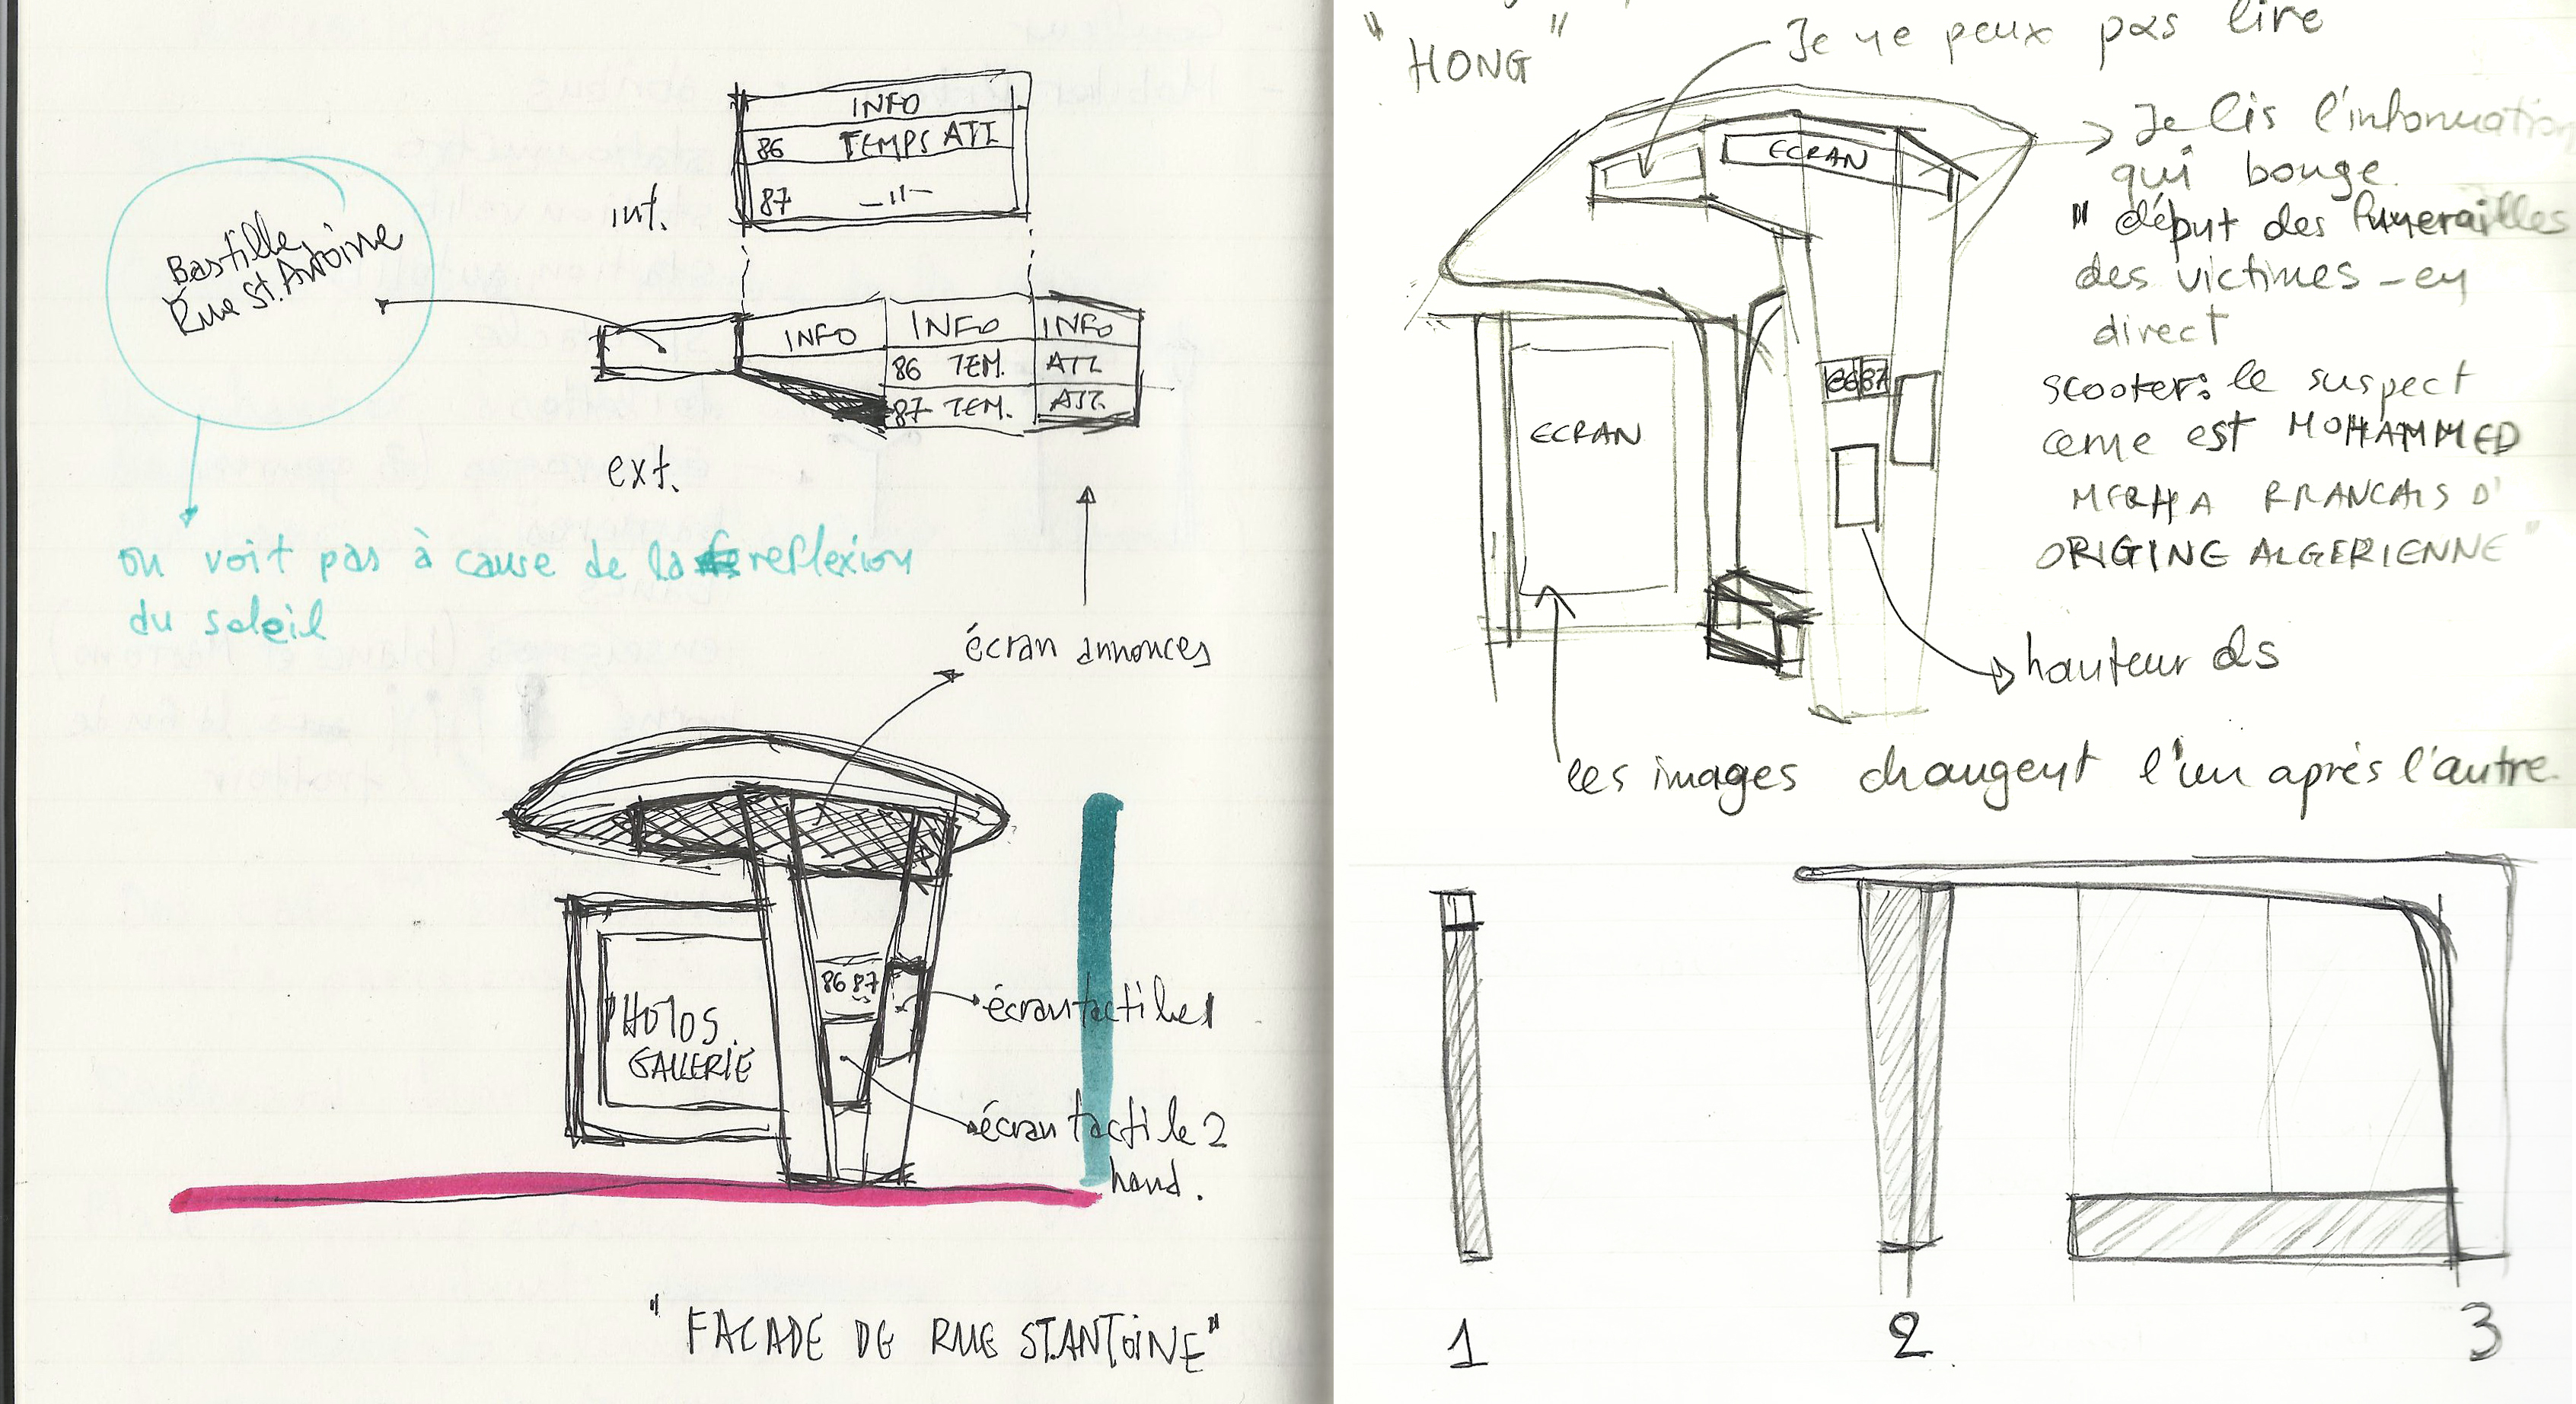 INFO
86 TEMPS ATT
87 -"-
int.
Bastille,
Rue St. Antoine
INFO INFO INFO
86 TEM. ATT
87 TEM. ATT.
ext.
on voit pas à cause de la reflexion
du soleil
écran annonces
86 87
PHOTOS
GALLERIE
écran tactile 1
écran tactile 2
hand.
"FACADE DE RUE ST.ANTOINE"
"HONG"
Je ne peux pas lire
ECRAN
Je lis l'information
qui bouge
" début des funerailles
des victimes - en
direct
scooter: le suspect
cerne est MOHAMMED
MERHA FRANCAIS D'
ORIGINE ALGERIENNE"
86 87
ECRAN
hauteur ds
les images changent l'un après l'autre.
1 2 3